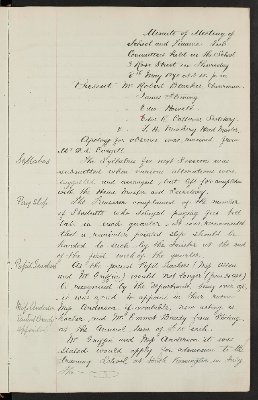 Minute of Meeting of
School and Finance Sub
Committees held in the School
3 Rose Street on Thursday
8th May 1890 at 3.15 p.m.
Present Mr Robert Blackie Chairman
James Fleming
Edw. Howatt
Edw. R. Catterns Secretary
F. H. Newbery Head Master
Apology for absence was received from
Mr
Syllabus The Syllabus for next Session was
submitted when various alterations were
suggested and arranged, but left for completion
with the Head Master and Secretary.
The Treasurer complained of the number
of Students who delayed paying fees till
late in each quarter. It was recommended
that a reminder printed slip should be
handed to each by the Janitor at the end
of the first week of the quarter.
As the present Pupil Teachers (Miss
and Mr Griffin) would not longer
be recognised by the Department, being over age,
it was agreed to appoint in their room
Miss Anderson if available, now acting as
and Mr from
at the annual sum of each.
Mr Griffin and Miss Anderson it was
stated would apply for admission to the
Training School at South Kensington in July